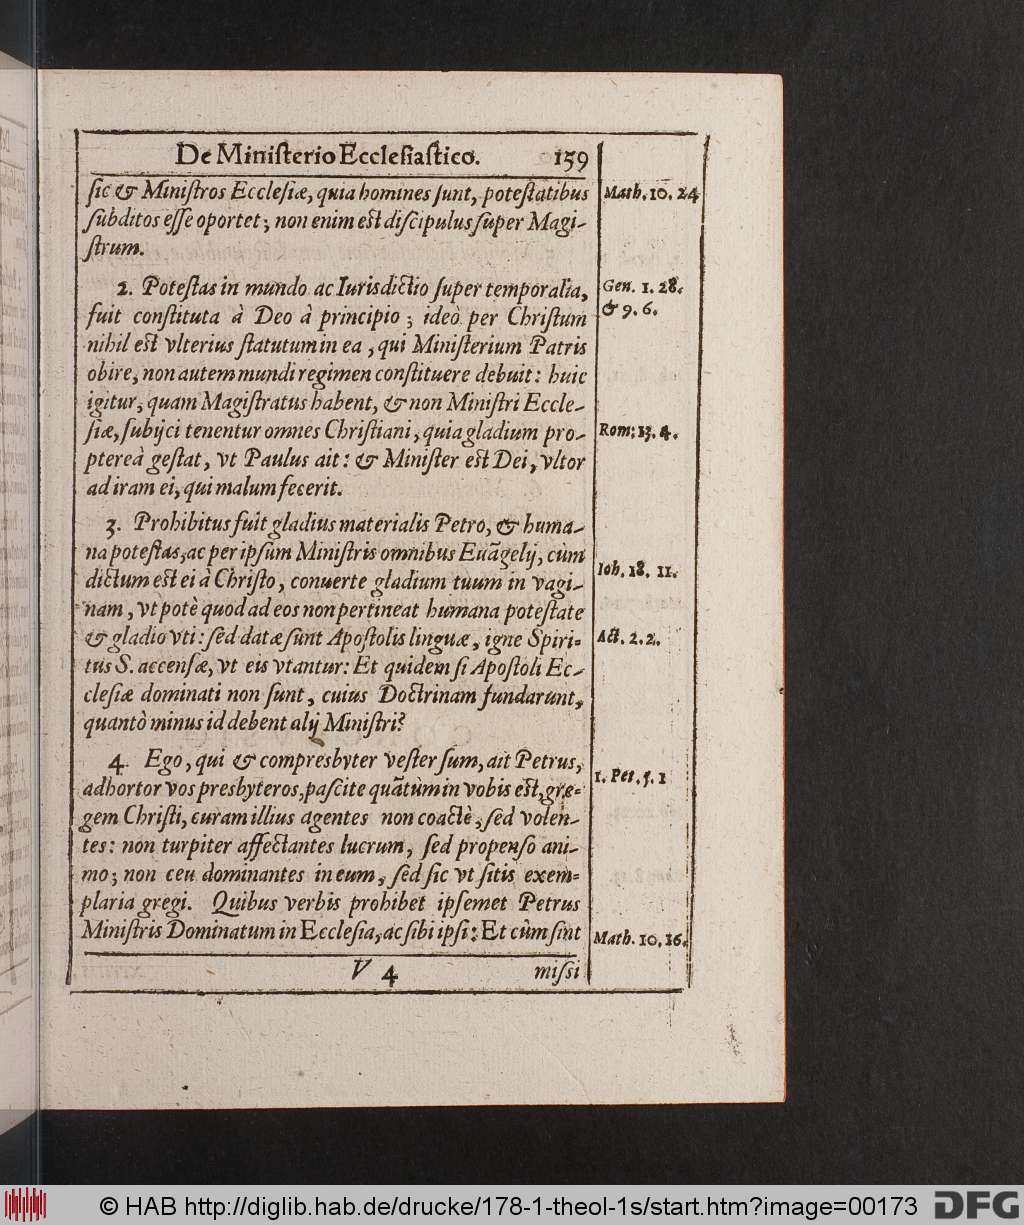 De Ministerio Ecclesiastico. 159
sic & Ministros Ecclesiæ, quia homines sunt, potestatibus
subditos esse oportet; non enim est discipulus super Magi-
strum.
Math. 10. 24
2. Potestas in mundo ac Iurisdictio super temporalia,
fuit constituta à Deo à principio; ideò per Christum
nihil est vlterius statutum in ea, qui Ministerium Patris
obire, non autem mundi regimen constituere debuit: huic
igitur, quam Magistratus habent, & non Ministri Eccle-
siæ, subijci tenentur omnes Christiani, quia gladium pro-
ptereà gestat, vt Paulus ait: & Minister est Dei, vltor
ad iram ei, qui malum fecerit.
Gen. 1. 28.
& 9. 6.
Rom: 13. 4.
3. Prohibitus fuit gladius materialis Petro, & huma-
na potestas, ac per ipsum Ministris omnibus Euãgelij, cùm
dictum est ei à Christo, conuerte gladium tuum in vagi-
nam, vt potè quod ad eos non pertineat humana potestate
& gladio vti: sed datæ sunt Apostolis linguæ, igne Spiri-
tus S. accensæ, vt eis vtantur: Et quidem si Apostoli Ec-
clesiæ dominati non sunt, cuius Doctrinam fundarunt,
quantò minus id debent alij Ministri?
Ioh. 18. 11.
Act. 2. 2.
4. Ego, qui & compresbyter vester sum, ait Petrus,
adhortor vos presbyteros, pascite quãtùm in vobis est, gre-
gem Christi, curam illius agentes non coactè, sed volen-
tes: non turpiter affectantes lucrum, sed propenso ani-
mo; non ceu dominantes in eum, sed sic vt sitis exem-
plaria gregi. Quibus verbis prohibet ipsemet Petrus
Ministris Dominatum in Ecclesia, ac sibi ipsi: Et cùm sint
1. Pet. 5. 1
Math. 10. 16.
V 4 missi
© HAB http://diglib.hab.de/drucke/178-1-theol-1s/start.htm?image=00173 DFG